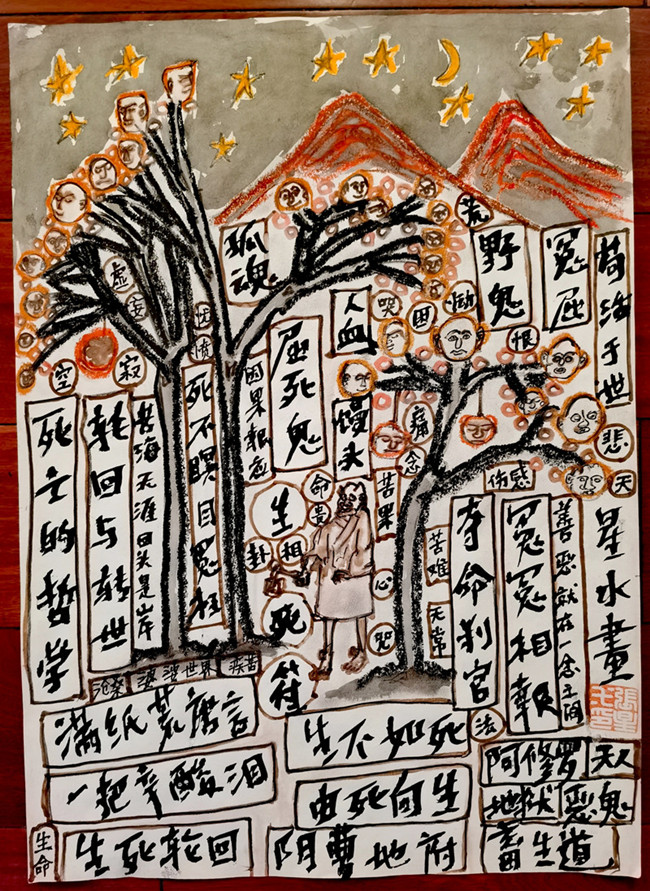 荒
野鬼
冤屈
孤魂
人血
馒头
哭
困
恨
悲
天
虚妄
忧愤
空
寂
屈死鬼
因果报应
死不瞑目冤枉
苦海天涯回头是岸
轮回与转世
死亡的哲学
痛
念
伤感
苦果
命
畏
生
卦
相
心
死
咒
符
苦难
无常
夺命刹宫
冤冤相報
善恶就在一念之间
星水畫
沧桑
婆婆世界
疾苦
满纸荒唐言
一把辛酸泪
生死轮回
生命
生不如死
由死向生
阴曹地府
法
阿修罗
天人
地狱
恶鬼
畜生道